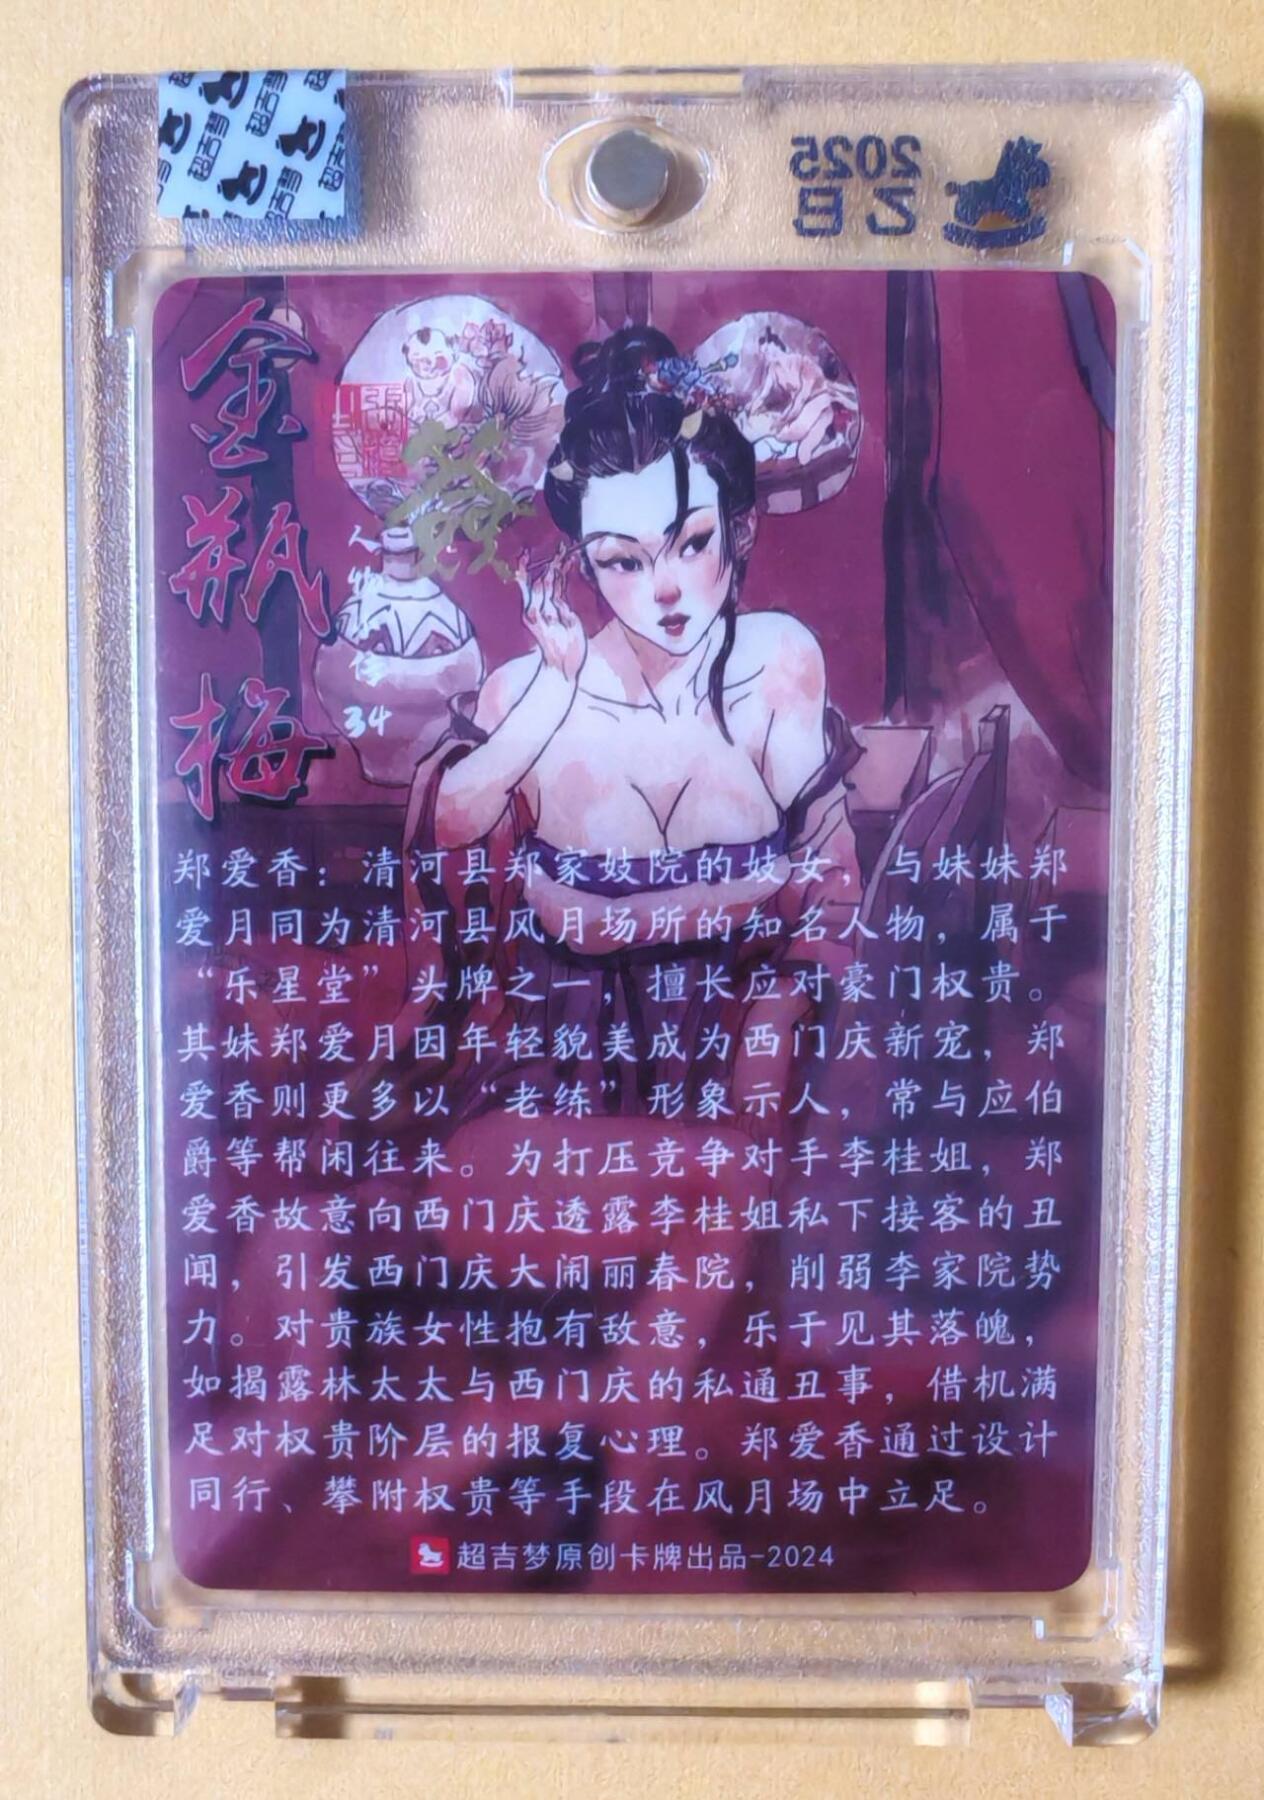 超吉梦
2025
乙巳
金瓶梅
人物
34
郑爱香：清河县郑家妓院的妓女，与妹妹郑
爱月同为清河县风月场所的知名人物，属于
“乐星堂”头牌之一，擅长应对豪门权贵。
其妹郑爱月因年轻貌美成为西门庆新宠，郑
爱香则更多以“老练”形象示人，常与应伯
爵等帮闲往来。为打压竞争对手李桂姐，郑
爱香故意向西门庆透露李桂姐私下接客的丑
闻，引发西门庆大闹丽春院，削弱李家院势
力。对贵族女性抱有敌意，乐于见其落魄，
如揭露林太太与西门庆的私通丑事，借机满
足对权贵阶层的报复心理。郑爱香通过设计
同行、攀附权贵等手段在风月场中立足。
超吉梦原创卡牌出品-2024